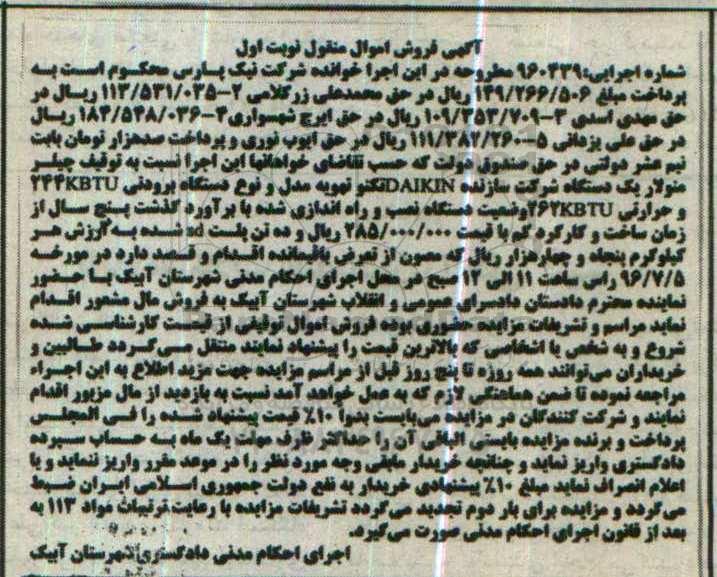 آگهی فروش اموال منقول نوبت اول
شماره اجرایی: ۹۶۰۳۳۹ مطروحه در این اجرا خوانده شرکت نیک پارس محکوم است به
پرداخت مبلغ ۱۴۹/۲۶۶/۵۰۶ ریال در حق محمدعلی زرکلامی ۲-۱۱۳/۵۳۱/۰۳۵ ریال در
حق مهدی اسدی ۳-۱۰۹/۳۵۳/۷۰۹ ریال در حق ایرج شهسواری ۴-۱۸۴/۵۴۸/۰۳۶ ریال
در حق علی یزدانی ۵-۱۱۱/۳۸۲/۲۶۰ ریال در حق ایوب نوری و پرداخت صدهزار تومان بابت
نیم عشر دولتی در حق صندوق دولت که حسب تقاضای خواهانها این اجرا نسبت به توقیف چیلر
مدولار یک دستگاه شرکت سازنده DAIKIN تکنو تهویه مدل و نوع دستگاه برودتی ۲۴۴KBTU
و حرارتی ۲۶۲KBTU وضعیت دستگاه نصب و راه اندازی شده با برآورد گذشت پنج سال از
زمان ساخت و کارکرد کم با قیمت ۲۸۵/۰۰۰/۰۰۰ ریال و ده تن پلت ad شده به ارزش هر
کیلوگرم پنجاه و چهارهزار ریال که مصون از تعرض باقیمانده اقدام و قصد دارد در مورخه
۹۶/۷/۵ راس ساعت ۱۱ الی ۱۲ صبح در محل اجرای احکام مدنی شهرستان آبیک با حضور
نماینده محترم دادستان دادسرای عمومی و انقلاب شهرستان آبیک به فروش مال مشعور اقدام
نماید مراسم و تشریفات مزایده حضوری بوده فروش اموال توقیفی از قیمت کارشناسی شده
شروع و به شخص یا اشخاصی که بالاترین قیمت را پیشنهاد نمایند منتقل می گردد طالبین و
خریداران می‌توانند همه روزه تا پنج روز قبل از مراسم مزایده جهت مزید اطلاع به این اجراء
مراجعه نموده تا ضمن هماهنگی لازم که به عمل خواهد آمد نسبت به بازدید از مال مزبور اقدام
نمایند و شرکت کنندگان در مزایده می‌بایست بدوا ۱۰٪ قیمت پیشنهاد شده را فی المجلس
پرداخت و برنده مزایده بایستی الباقی آن را حداکثر ظرف مهلت یک ماه به حساب سپرده
دادگستری واریز نماید و چنانچه خریدار مابقی وجه مورد نظر را در موعد مقرر واریز ننماید و یا
اعلام انصراف نماید مبلغ ۱۰٪ پیشنهادی خریدار به نفع دولت جمهوری اسلامی ایران ضبط
می گردد و مزایده برای بار دوم تجدید می گردد تشریفات مزایده با رعایت ترتیبات مواد ۱۱۳ به
بعد از قانون اجرای احکام مدنی صورت می گیرد.
اجرای احکام مدنی دادگستری شهرستان آبیک